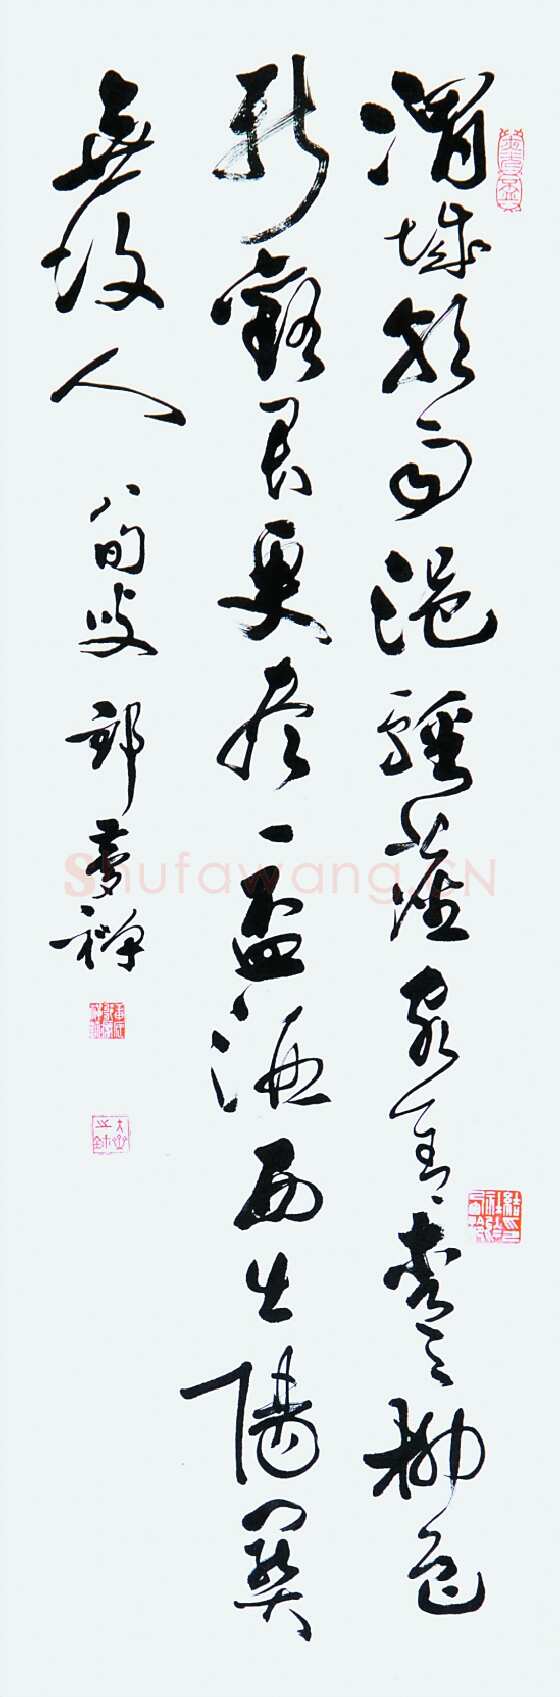 渭城朝雨浥輕塵客舍青〻柳色
新勸君更盡一盃酒西出陽關
無故人 八旬叟 鄒夢禪
Shufawang.CN